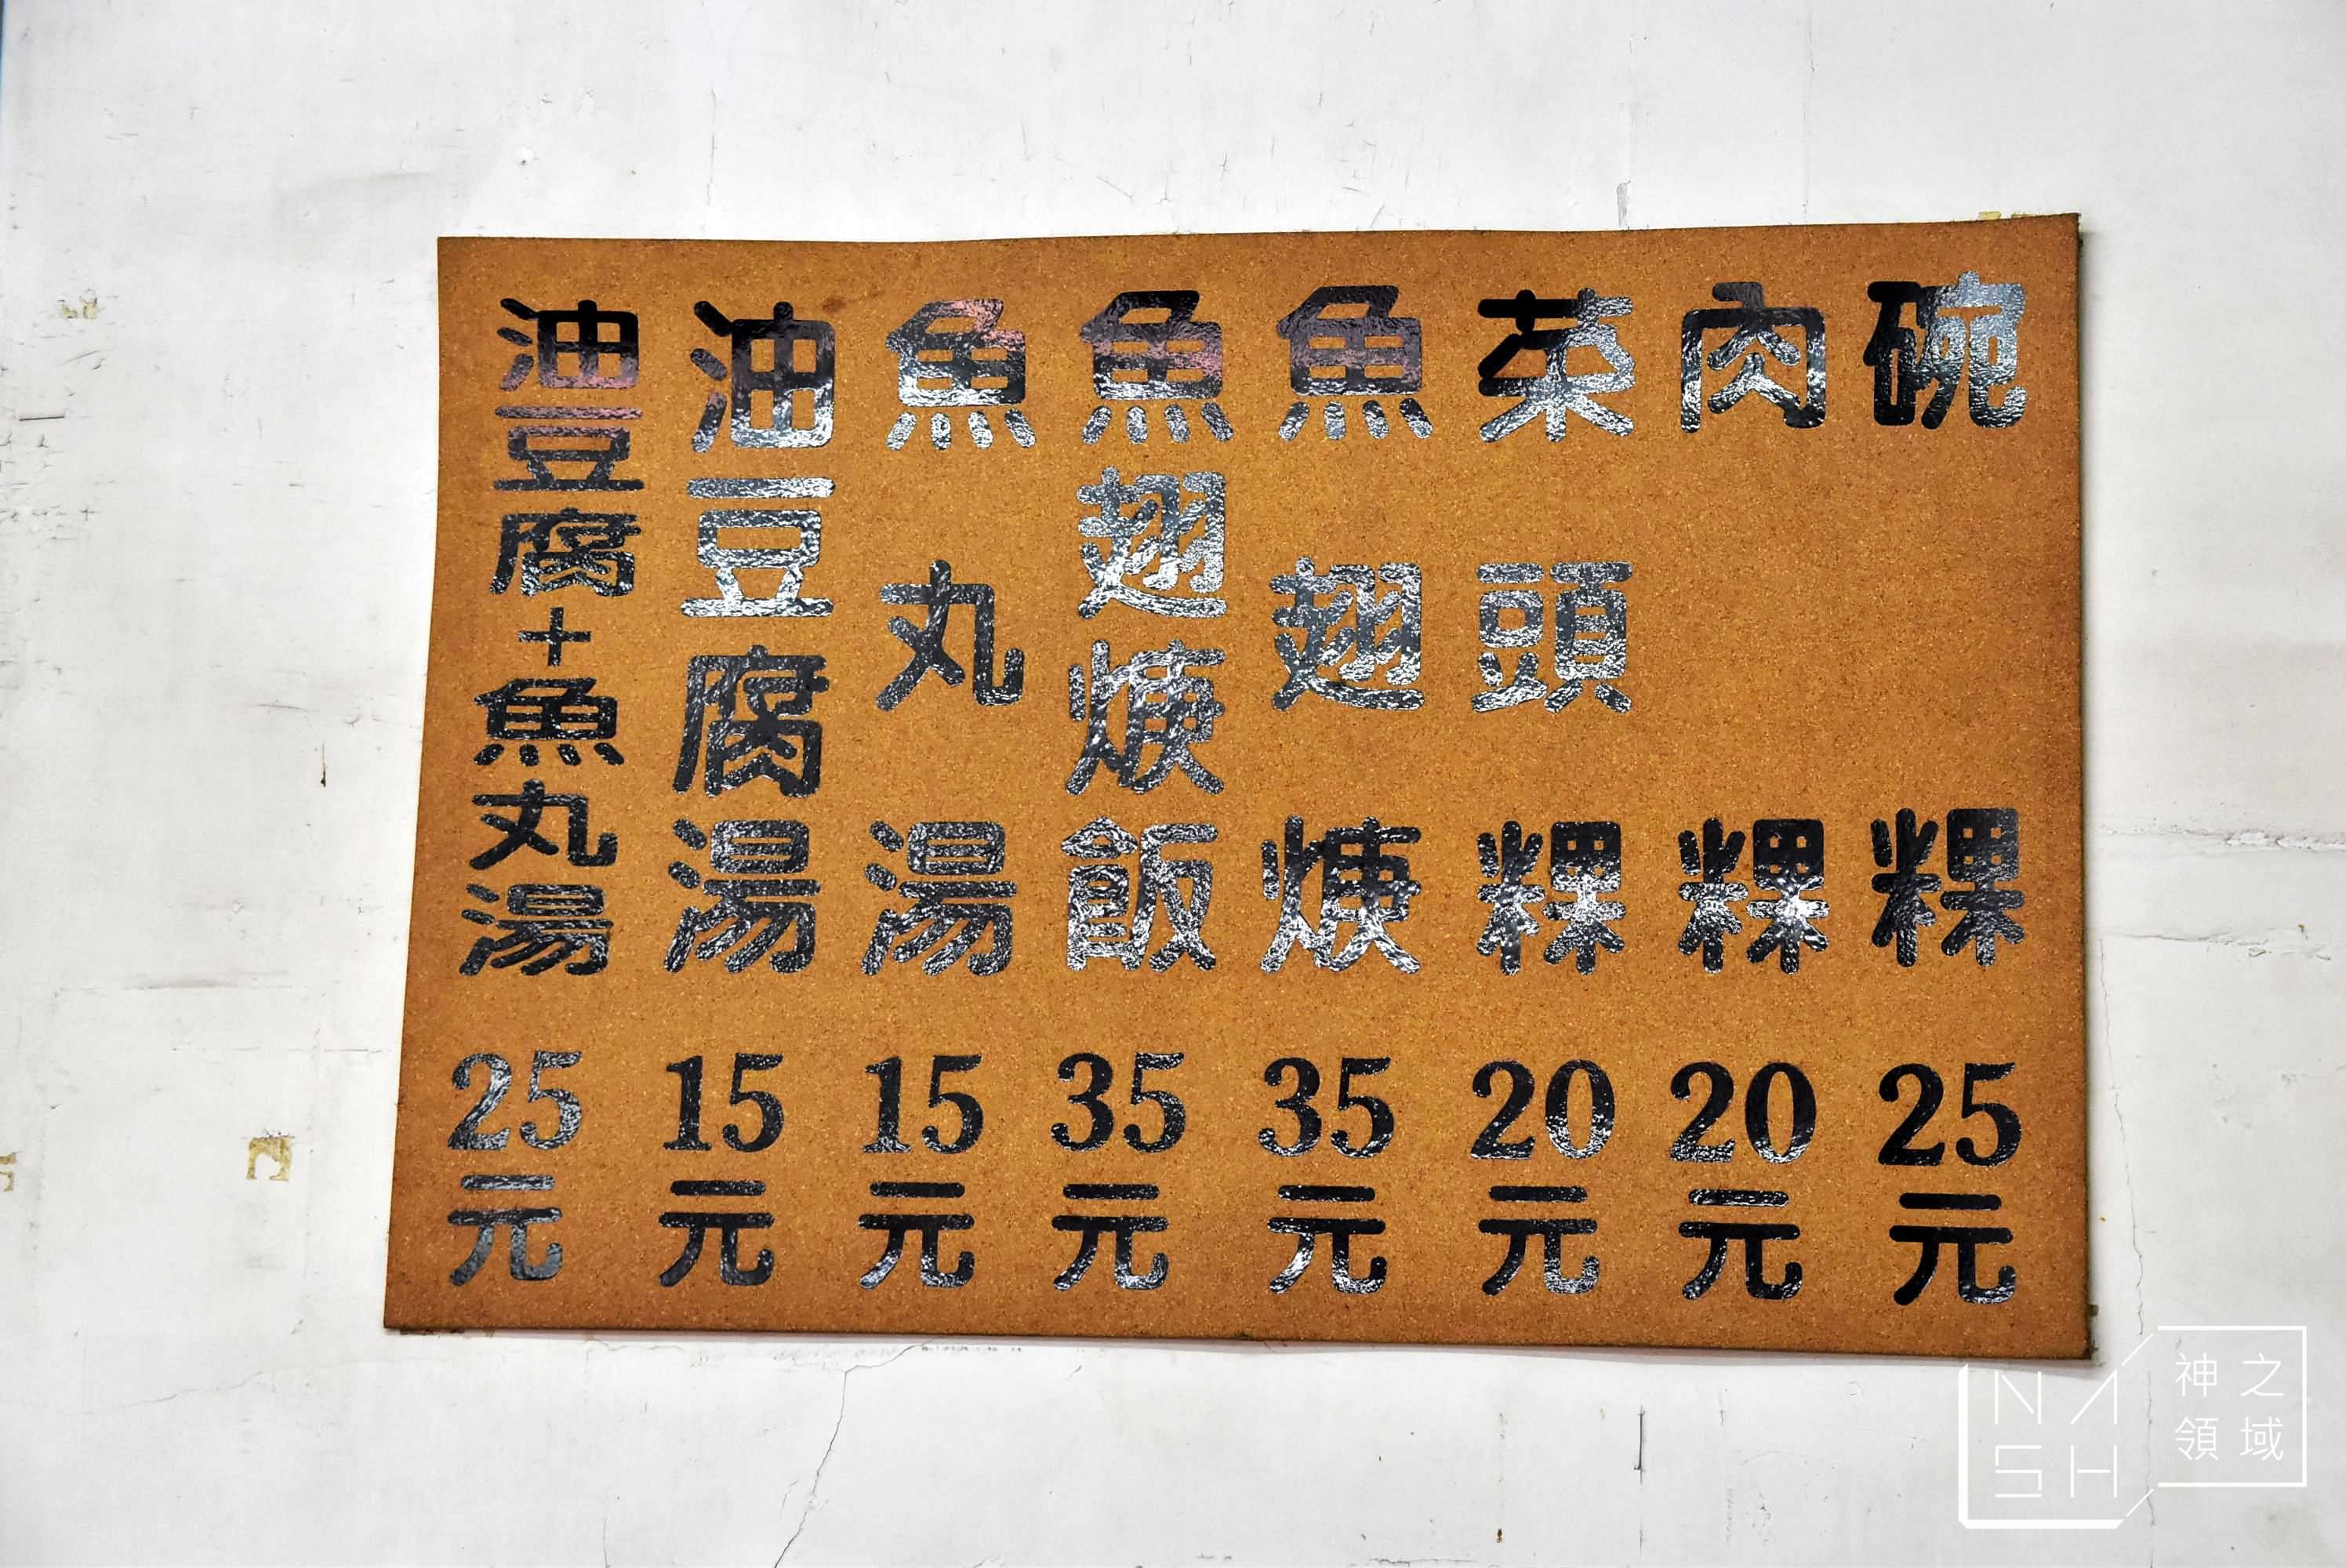 碗粿 25元
肉粿 20元
菜頭粿 20元
魚翅焿 35元
魚翅焿飯 35元
魚丸湯 15元
油豆腐湯 15元
油豆腐+魚丸湯 25元
NASH
神之領域